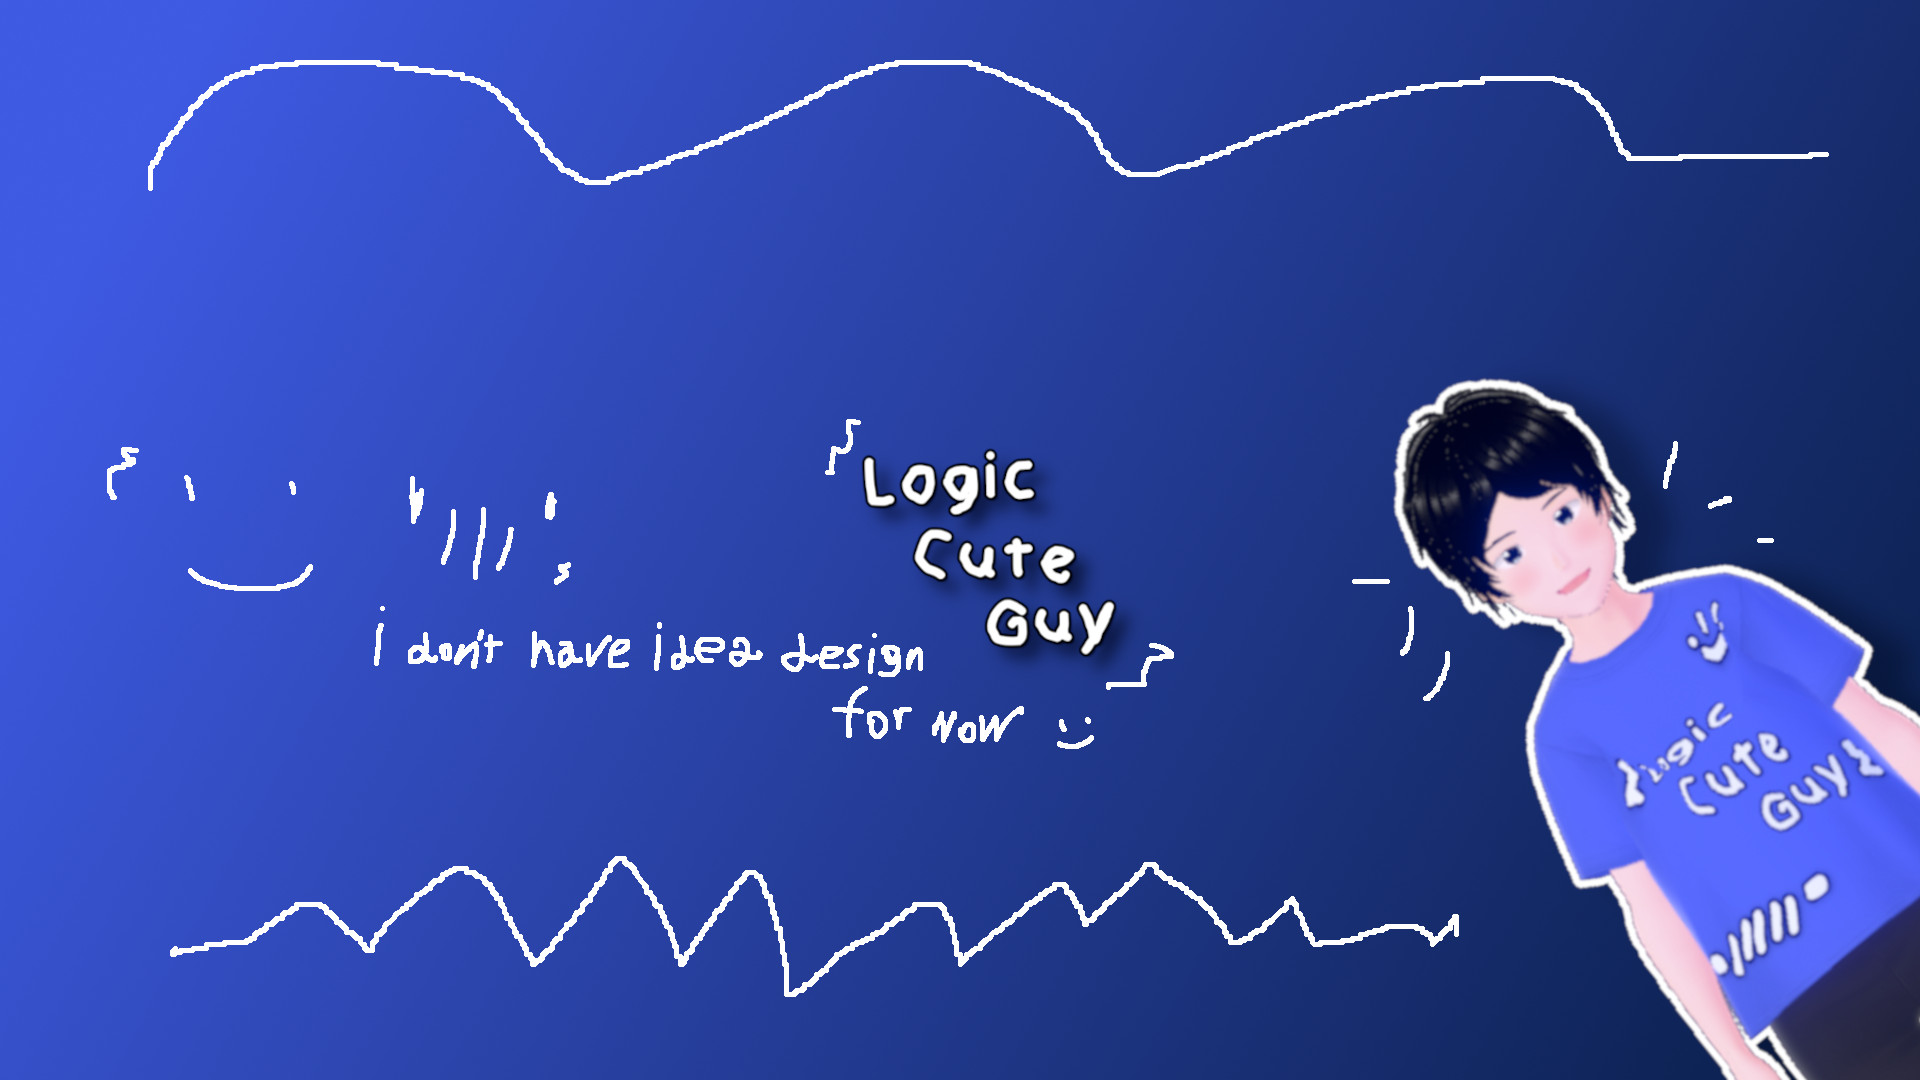 Logic
Cute
Guy
i don't have idea design
for now :)
Logic
Cute
Guy